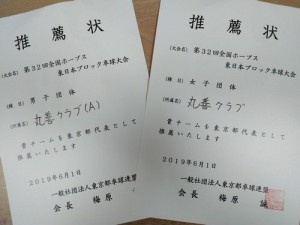 推薦状
(大会名) 第32回全国ホープス
東日本ブロック卓球大会
(種目) 男子団体
(所属名) 丸善クラブ(A)
貴チームを東京都代表として
推薦いたします
2019年6月1日
一般社団法人東京都卓球連盟
会長 梅原
推薦状
(大会名) 第32回全国ホープス
東日本ブロック卓球大会
(種目) 女子団体
(所属名) 丸善クラブ
貴チームを東京都代表として
推薦いたします
2019年6月1日
一般社団法人東京都卓球連盟
会長 梅原 誠